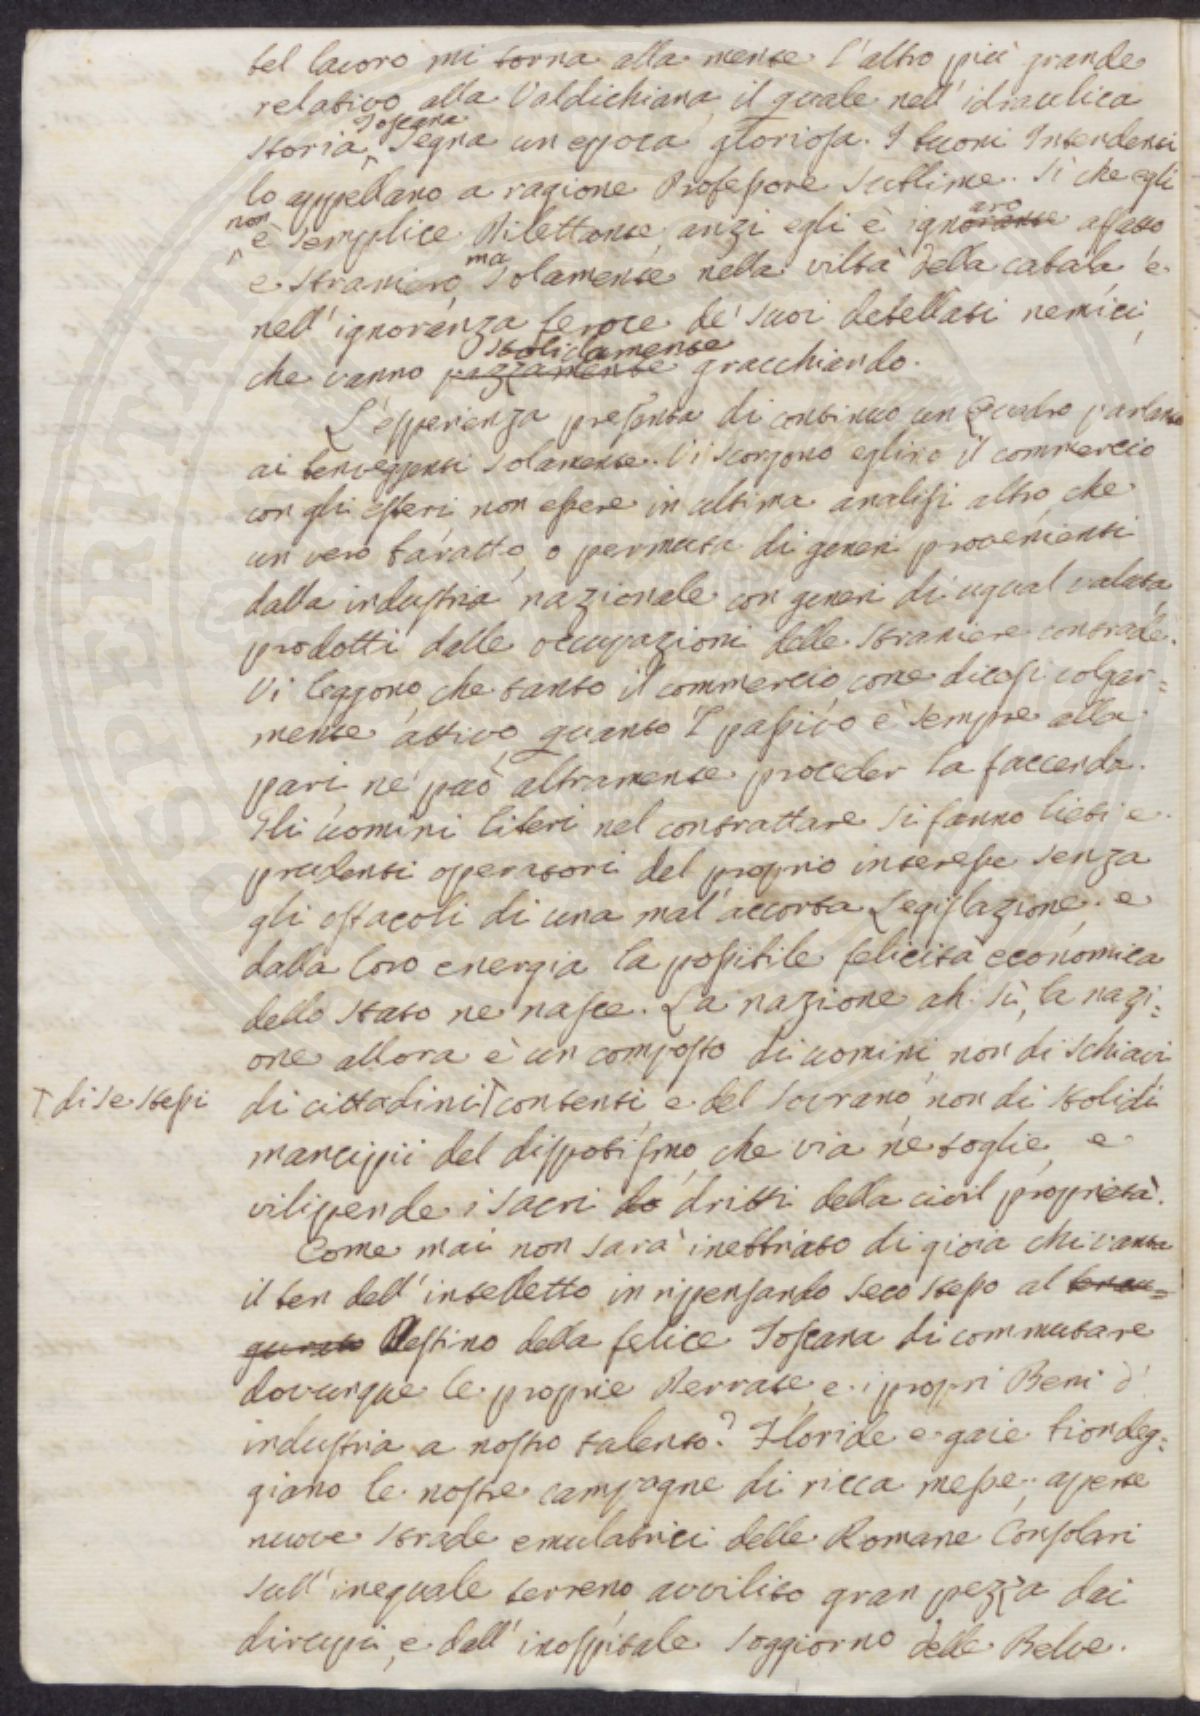 bel lavoro mi torna alla mente l'altro più grande
relativo alla Valdichiana, il quale nell'idraulica
Storia Toscana segna un epoca gloriosa. I buoni Intendenti
lo appellano a ragione Professore sublime. Sì che egli
non è semplice Dilettante, anzi egli è ignaro affatto
e straniero, ma solamente nella viltà della cabala e
nell'ignoranza feroce de' suoi debellati nemici,
che vanno pazzamente stolidamente gracchiando.
L'esperienza presenta di continuo un Quadro parlante
ai benveggenti solamente. Vi scorgono eglino il commercio
con gli esteri non essere in ultima analisi altro che
un vero baratto, o permuta di generi provenienti
dalla industria nazionale con generi di ugual valuta
prodotti dalle occupazioni delle straniere contrade.
Vi leggono, che tanto il commercio, come dicesi volgar=
mente attivo, quanto l passivo è sempre alla
pari, ne può altramente proceder la faccenda.
Gli uomini liberi nel contrattare si fanno lieti e
prudenti operatori del proprio interesse senza
gli ostacoli di una mal'accorta Legislazione, e
dalla loro energia la possibile felicità economica
dello stato ne nasce. La nazione ah sì, la nazi=
one allora è un composto di uomini, non di schiavi
di cittadini contenti di se stessi e del sovrano, non di stolidi
mancipii del dispotismo, che via ne toglie, e
vilipende i sacri do dritti della civil proprietà.
Come mai non sarà inebbriato di gioia chi vanta
il ben dell'intelletto in ripensando seco stesso al
Destino della felice Toscana di commutare
dovunque le proprie Derrate, e i proprj Beni d'
industria a nostro talento? Floride e gaie biondeg=
giano le nostre campagne di ricca messe: aperte
nuove strade emulatrici delle Romane Consolari
sull'ineguale terreno avvilito gran pezza dai
dirupi, e dall'inospitale soggiorno delle Belve.